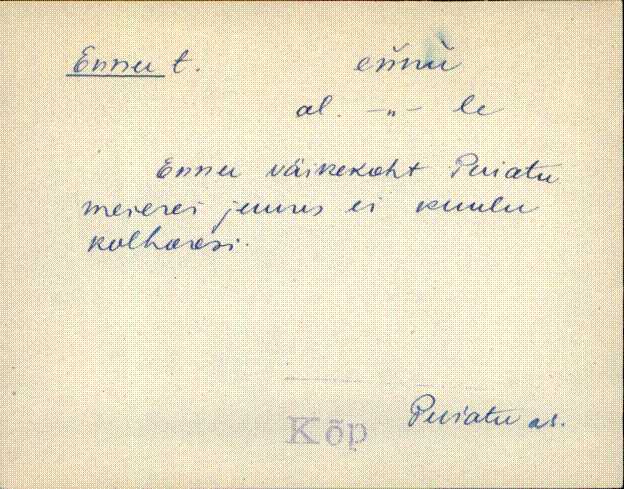 Ennu t. eǹnù
al. -„- le
Ennu väikekoht Puiatu
meierei juures ei kuulu
kolhoosi.
Kõp Puiatu as.